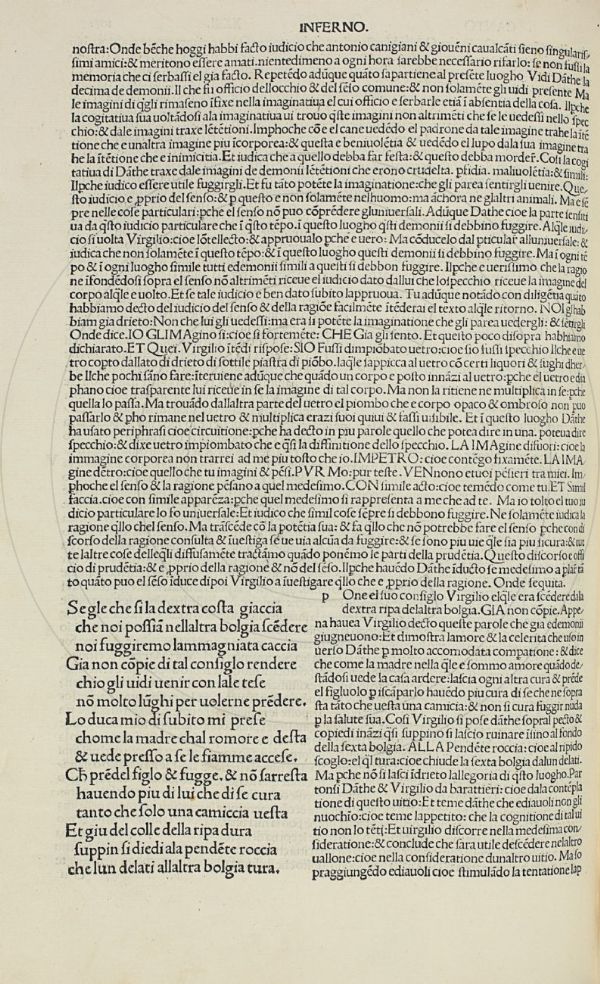 INFERNO.
nostra: Onde bēche hoggi habbi facto iudicio che antonio canigiani & gioueni caualcāti sieno singularis-
simi amici: & meritono essere amati. nientedimeno a ogni hora sarebbe necessario rifarlo: se non fussi la
memoria che ci serbassi el gia facto. Repetēdo adūque quāto sapartiene al presēte luogho Vidi Dāthe la
decima de demonii. Il che fu officio dellocchio & del sēso comune: & non solamēte gli uide presente Ma
le imagini di q̄lgli rimaseno ifixe nella imaginatiua el cui officio e serbarle etiā ī absentia della cosa. Ilpche
la cogitatiua sua uoltādosi ala imaginatiua ui trouo q̄ste imagini non altrimēti che se le uedessi nello spec
chio: & dale imagini traxe lētētioni. Imphoche cōe el cane uedēdo el padrone da tale imagine trahe la itē
tione che e unaltra imagine piu īcorporea: & questa e beniuolētia & uedēdo el lupo dala sua imagine tra
he la itētione che e inimicitia. Et iudica che a quello debba far festa: & questo debba morder̄. Cosi la cogi
tatiua di Dāthe traxe dale imagini de demonii lētētioni che erono crudelta. p̄fidia. maliuolētia: & simili:
Ilpche iudico essere utile fuggirgli. Et fu tāto potēte la imaginatione: che gli parea sentirgli uenire. Que
sto iudicio e p̄prio del senso: & p questo e non solamēte nelhuomo: ma āchora ne glaltri animali. Ma e sē
pre nelle cose particulari: pche el senso nō puo cōprēdere gluniuersali. Adūque Dāthe cioe la parte sensiti
ua da q̄sto iudicio particulare che ī q̄sto tēpo. ī questo luogho q̄sti demonii si debbino fuggire. Alq̄le iudi
cio si uolta Virgilio: cioe lōtellecto: & appruoualo pche e uero: Ma cōducelo dal pticular alluniuersale: &
iudica che non solamēte ī questo tēpo: & ī questo luogho questi demonii si debbino fuggire. Ma ī ogni tē
po & ī ogni luogho simile tutti edemonii simili a questi si debbon fuggire. Ilpche e uerissimo che la ragio
ne ifondēdosi sopra el senso nō altrimēti riceue el iudicio dato dallui che lospecchio riceue la imagine del
corpo alq̄le e uolto. Et se tale iudicio e ben dato subito lappruoua. Tu adūque notādo con diligētia quāto
habbiamo decto del iudicio del senso & della ragiōe facilmēte itēderai el texto alq̄le ritorno. NOI gl hab
biam gia drieto: Non che lui gli uedessi: ma era si potēte la imaginatione che gli parea uedergli: & sētirgli
Onde dice. IO GLI IMAgino si: cioe si fortemēte: CHE Gia gli sento. Et questo poco disopra habbiamo
dichiarato. ET Quei. Virgilio itēdi rispose: SIO Fussi dimpiōbato uetro: cioe sio fussi specchio Ilche e ue
tro copto dallato di drieto di sottile piastra di piōbo. laq̄le sappicca al uetro cō certi liquori & sughi dher
be Ilche pochi sāno fare: īteruiene adūque che quādo un corpo e posto innāzi al uetro: pche el uetro e dia
phano cioe trasparente lui riceue in se la imagine di tal corpo. Ma non la ritiene ne multiplica in se: pche
quella lo passa. Ma trouādo dallaltra parte del uetro el piombo che e corpo opaco & ombroso non puo
passarlo & pho rimane nel uetro & multiplica erazi suoi quiui & fassi uisibile. Et ī questo luogho Dāthe
ha usato periphrasi cioe circuitione: pche ha decto in piu parole quello che potea dire in una. potea dire
specchio: & dixe uetro impiombato che e q̄si la diffinitione dello specchio. LA IMAgine difuori: cioe la
immagine corporea non trarrei ad me piu tosto che io. IMPETRO: cioe contēgo fixamēte. LA IMA
gine dētro: cioe quello che tu imagini & pēsi. PVR Mo: pur teste. VENnono etuoi pēsieri tra miei. Im
phoche el senso & la ragione pēsano a quel medesimo. CON simile acto: cioe temēdo come tu. ET Simil
faccia. cioe con simile apparēza: pche quel medesimo si rappresenta a me che ad te. Ma io tolto el tuo iu
dicio particulare lo fo uniuersale: Et iudico che simil cose sēpre si debbono fuggire. Ne solamēte iudica la
ragione q̄llo chel senso. Ma trascēde cō la potētia sua: & fa q̄llo che nō potrebbe fare el senso pche con di
scorso della ragione consulta & iuestiga se ue uia alcūa da fuggire: & se sono piu uie q̄le sia piu sicura: & tut
te laltre cose delleq̄li diffusamēte tractāmo quādo ponēmo le parti della prudētia. Questo discorso e offi
cio di prudētia: & e p̄prio della ragione & nō del sēso. Ilpche hauēdo Dāthe iducto se medesimo a
to quāto puo el sēso iduce dipoi Virgilio a iuestigare q̄llo che e p̄prio della ragione. Onde sequita.
Se gle che si la dextra costa giaccia
che noi possiā nellaltra bolgia scēdere
noi fuggiremo lammagniata caccia
Gia non cōpie di tal consiglo rendere
chio gli uidi uenir con lale tese
nō molto lūghi per uolerne prēdere.
Lo duca mio di subito mi prese
chome la madre chal romore e desta
& uede presso a se le fiamme accese.
Ch̄ prēdel figlo & fugge. & nō sarresta
hauendo piu di lui che di se cura
tanto che solo una camiccia uesta
Et giu del colle della ripa dura
suppin si diedi ala pendēte roccia
che lun delati allaltra bolgia tura.
p One el suo consiglo Virgilio elq̄le era scēdere di la
dextra ripa delaltra bolgia. GIA non cōpie. Appe
na hauea Virgilio decto queste parole che gia edemonii
giugneuono: Et dimostra lamore & la celerita che uso in
uerso Dāthe p molto accomodata comparatione: & dice
che come la madre nella q̄le e sommo amore quādo de
stādosi uede la casa ardere: lascia ogni altra cura & prēde
el figluolo p iscāparlo hauēdo piu cura di se che ne sopra
sta tāto che uesta una camicia: & non si cura fuggir nuda
p la salute sua. Cosi Virgilio si pose dāthe sopral pecto &
copiedi ināzi q̄si suppino si lascio ruinare isino al fondo
della sexta bolgia. ALLA Pendēte roccia: cioe al ripido
scoglo: el q̄l tura: cioe chiude la sexta bolgia dalun delati.
Ma pche nō si lasci īdrieto lallegoria di q̄sto luogho. Par
tonsi Dāthe & Virgilio da barattieri: cioe dala contēpla
tione di questo uitio: Et teme dāthe che ediauoli non gli
nuochīo: cioe teme lappetito: che la cognitione di tal ui
tio non lo tēti: Et uirgilio discorre nella medesima con
sideratione: & conclude che sara utile descēdere nelaltro
uallone: cioe nella consideratione dunaltro uitio. Ma so
praggiungēdo ediauoli cioe stimulādo la tentatione lap